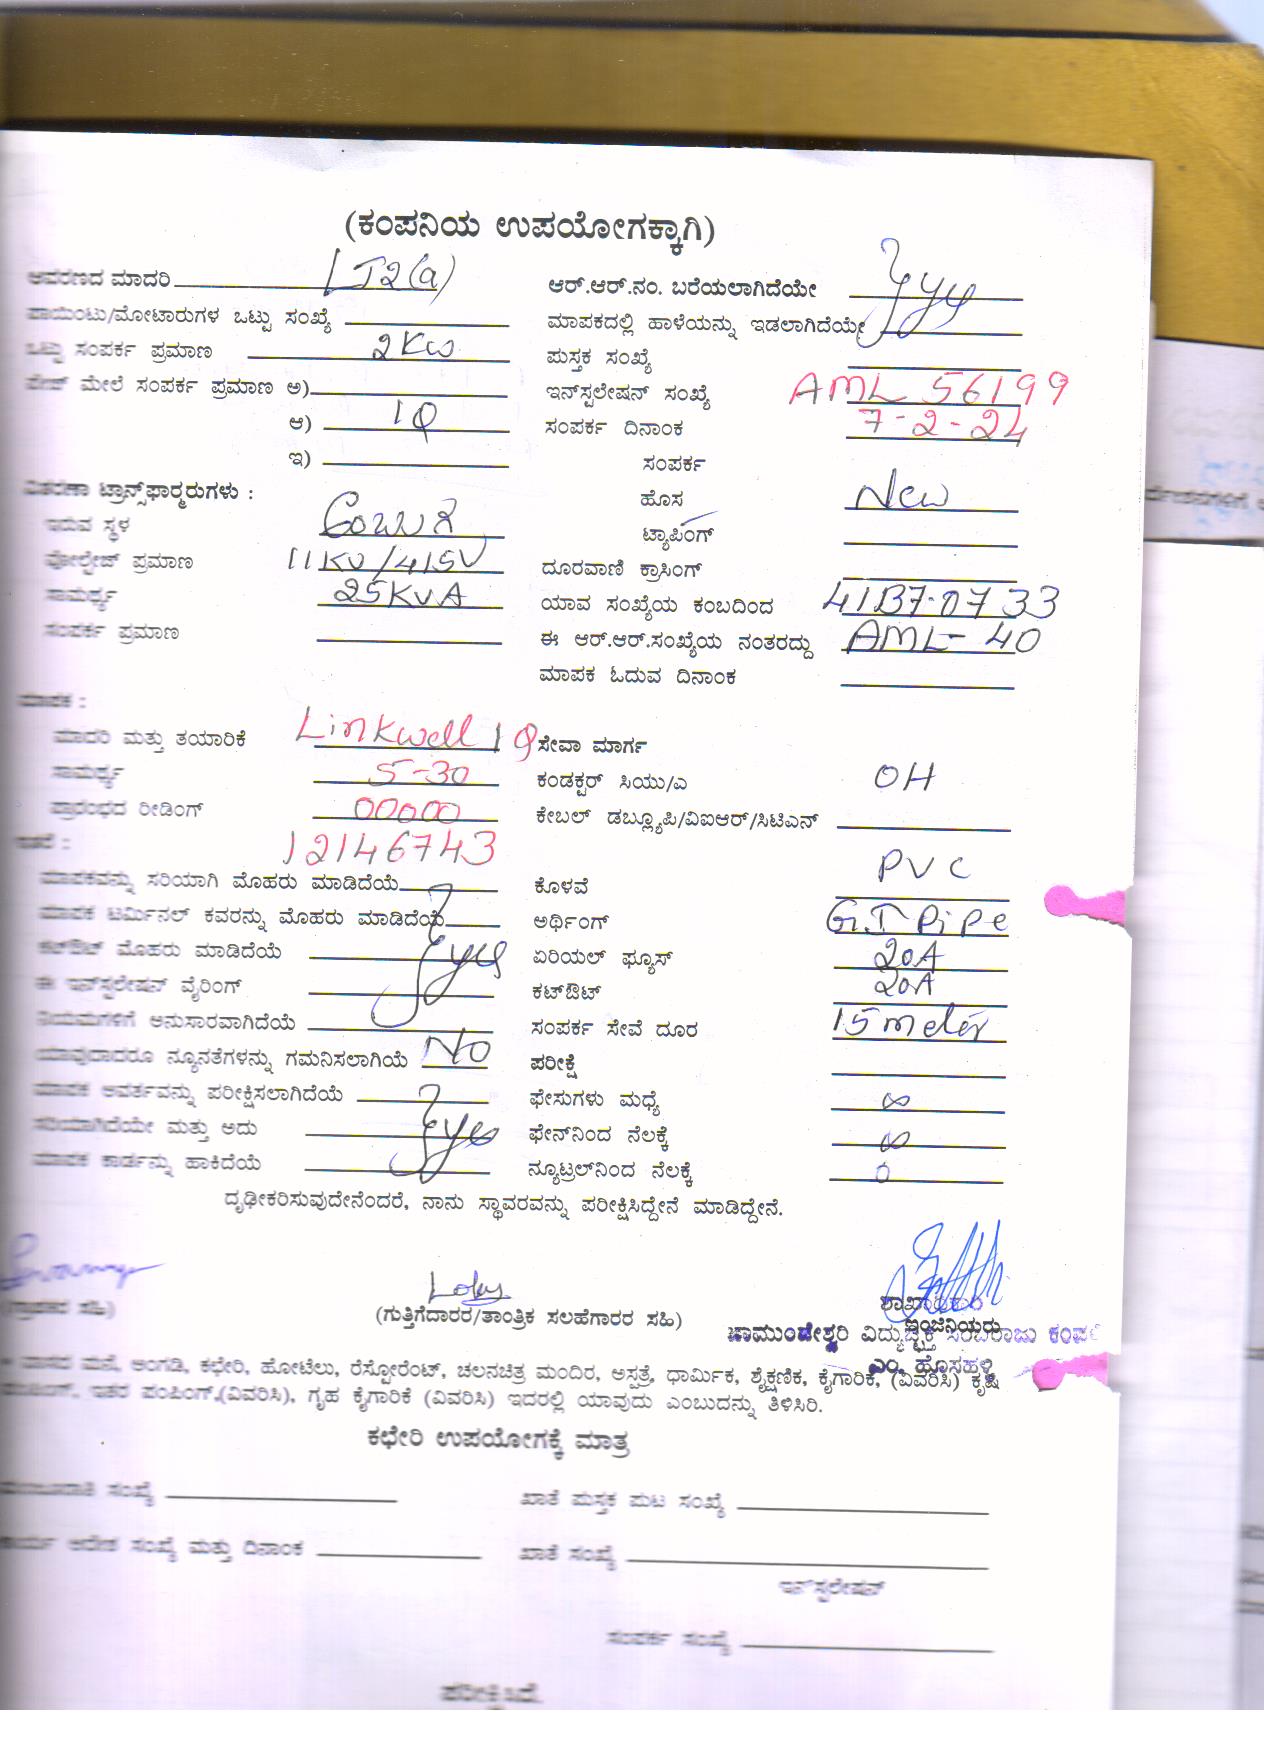 (ಕಂಪನಿಯ ಉಪಯೋಗಕ್ಕಾಗಿ)
ಆವರಣದ ಮಾದರಿ LT2(a) ಆರ್.ಆರ್.ನಂ. ಬರೆಯಲಾಗಿದೆಯೇ
ಪಾಯಿಂಟು/ಮೋಟಾರುಗಳ ಒಟ್ಟು ಸಂಖ್ಯೆ ಮಾಪಕದಲ್ಲಿ ಹಾಳೆಯನ್ನು ಇಡಲಾಗಿದೆಯೇ
ಒಟ್ಟು ಸಂಪರ್ಕ ಪ್ರಮಾಣ 2Kw ಪುಸ್ತಕ ಸಂಖ್ಯೆ
ಪೇಜ್ ಮೇಲೆ ಸಂಪರ್ಕ ಪ್ರಮಾಣ ಅ) ಇನ್‌ಸ್ಟಲೇಷನ್ ಸಂಖ್ಯೆ AML 56199
ಆ) 1Φ ಸಂಪರ್ಕ ದಿನಾಂಕ 7-2-24
ಇ) ಸಂಪರ್ಕ
ವಿತರಣಾ ಟ್ರಾನ್ಸ್‌ಫಾರ್ಮರುಗಳು : ಹೊಸ New
ಇರುವ ಸ್ಥಳ ಟ್ಯಾಪಿಂಗ್
ವೋಲ್ಟೇಜ್ ಪ್ರಮಾಣ 11KV/415V ದೂರವಾಣಿ ಕ್ರಾಸಿಂಗ್
ಸಾಮರ್ಥ್ಯ 25KVA ಯಾವ ಸಂಖ್ಯೆಯ ಕಂಬದಿಂದ 41B7-0733
ಸಂಪರ್ಕ ಪ್ರಮಾಣ ಈ ಆರ್.ಆರ್.ಸಂಖ್ಯೆಯ ನಂತರದ್ದು AML-40
ಮಾಪಕ ಓದುವ ದಿನಾಂಕ
ಮಾಪಕ :
ಮಾದರಿ ಮತ್ತು ತಯಾರಿಕೆ Linkwell 1Φ ಸೇವಾ ಮಾರ್ಗ
ಸಾಮರ್ಥ್ಯ 5-30 ಕಂಡಕ್ಟರ್ ಸಿಯು/ಎ OH
ಪ್ರಾರಂಭದ ರೀಡಿಂಗ್ 00000 ಕೇಬಲ್ ಡಬ್ಲ್ಯೂಪಿ/ವಿಐಆರ್/ಸಿಟಿಎನ್
12146743
ಮಾಪಕವನ್ನು ಸರಿಯಾಗಿ ಮೊಹರು ಮಾಡಿದೆಯೆ ಕೊಳವೆ PVC
ಮಾಪಕ ಟರ್ಮಿನಲ್ ಕವರನ್ನು ಮೊಹರು ಮಾಡಿದೆಯೆ ಅರ್ಥಿಂಗ್ G.I Pipe
ಕಟ್‌ಔಟ್ ಮೊಹರು ಮಾಡಿದೆಯೆ ಏರಿಯಲ್ ಫ್ಯೂಸ್ 20A
ಈ ಇನ್‌ಸ್ಟಲೇಷನ್ ವೈರಿಂಗ್ ಕಟ್‌ಔಟ್ 20A
ನಿಯಮಗಳಿಗೆ ಅನುಸಾರವಾಗಿದೆಯೆ ಸಂಪರ್ಕ ಸೇವೆ ದೂರ 15 meter
ಯಾವುದಾದರೂ ನ್ಯೂನತೆಗಳನ್ನು ಗಮನಿಸಲಾಗಿಯೆ No ಪರೀಕ್ಷೆ
ಮಾಪಕ ಅವರ್ತವನ್ನು ಪರೀಕ್ಷಿಸಲಾಗಿದೆಯೆ ಫೇಸುಗಳು ಮಧ್ಯೆ ∞
ಸರಿಯಾಗಿದೆಯೇ ಮತ್ತು ಅದು ಫೇನ್‌ನಿಂದ ನೆಲಕ್ಕೆ ∞
ಮಾಪಕ ಕಾರ್ಡನ್ನು ಹಾಕಿದೆಯೆ ನ್ಯೂಟ್ರಲ್‌ನಿಂದ ನೆಲಕ್ಕೆ 0
ದೃಢೀಕರಿಸುವುದೇನೆಂದರೆ, ನಾನು ಸ್ಥಾವರವನ್ನು ಪರೀಕ್ಷಿಸಿದ್ದೇನೆ ಮಾಡಿದ್ದೇನೆ.
(ಗ್ರಾಹಕರ ಸಹಿ) (ಗುತ್ತಿಗೆದಾರರ/ತಾಂತ್ರಿಕ ಸಲಹೆಗಾರರ ಸಹಿ)
ಇಂಜಿನಿಯರು
ಚಾಮುಂಡೇಶ್ವರಿ ವಿದ್ಯುಚ್ಛಕ್ತಿ ಸರಬರಾಜು ಕಂಪನಿ
ಎಂ. ಹೊಸಹಳ್ಳಿ
ವಾಸದ ಮನೆ, ಅಂಗಡಿ, ಕಛೇರಿ, ಹೋಟೆಲು, ರೆಸ್ಟೋರೆಂಟ್, ಚಲನಚಿತ್ರ ಮಂದಿರ, ಅಸ್ಪತ್ರೆ, ಧಾರ್ಮಿಕ, ಶೈಕ್ಷಣಿಕ, ಕೈಗಾರಿಕೆ, (ವಿವರಿಸಿ) ಕೃಷಿ
ಇತರ ಪಂಪಿಂಗ್,(ವಿವರಿಸಿ), ಗೃಹ ಕೈಗಾರಿಕೆ (ವಿವರಿಸಿ) ಇದರಲ್ಲಿ ಯಾವುದು ಎಂಬುದನ್ನು ತಿಳಿಸಿರಿ.
ಕಛೇರಿ ಉಪಯೋಗಕ್ಕೆ ಮಾತ್ರ
ಸಂಖ್ಯೆ ಖಾತೆ ಪುಸ್ತಕ ಪುಟ ಸಂಖ್ಯೆ
ಕಾರ್ಯ ಆದೇಶ ಸಂಖ್ಯೆ ಮತ್ತು ದಿನಾಂಕ ಖಾತೆ ಸಂಖ್ಯೆ
ಇನ್‌ಸ್ಟಲೇಷನ್
ಸಂಪರ್ಕ ಸಂಖ್ಯೆ
ಪರೀಕ್ಷಿಸಿದೆ.